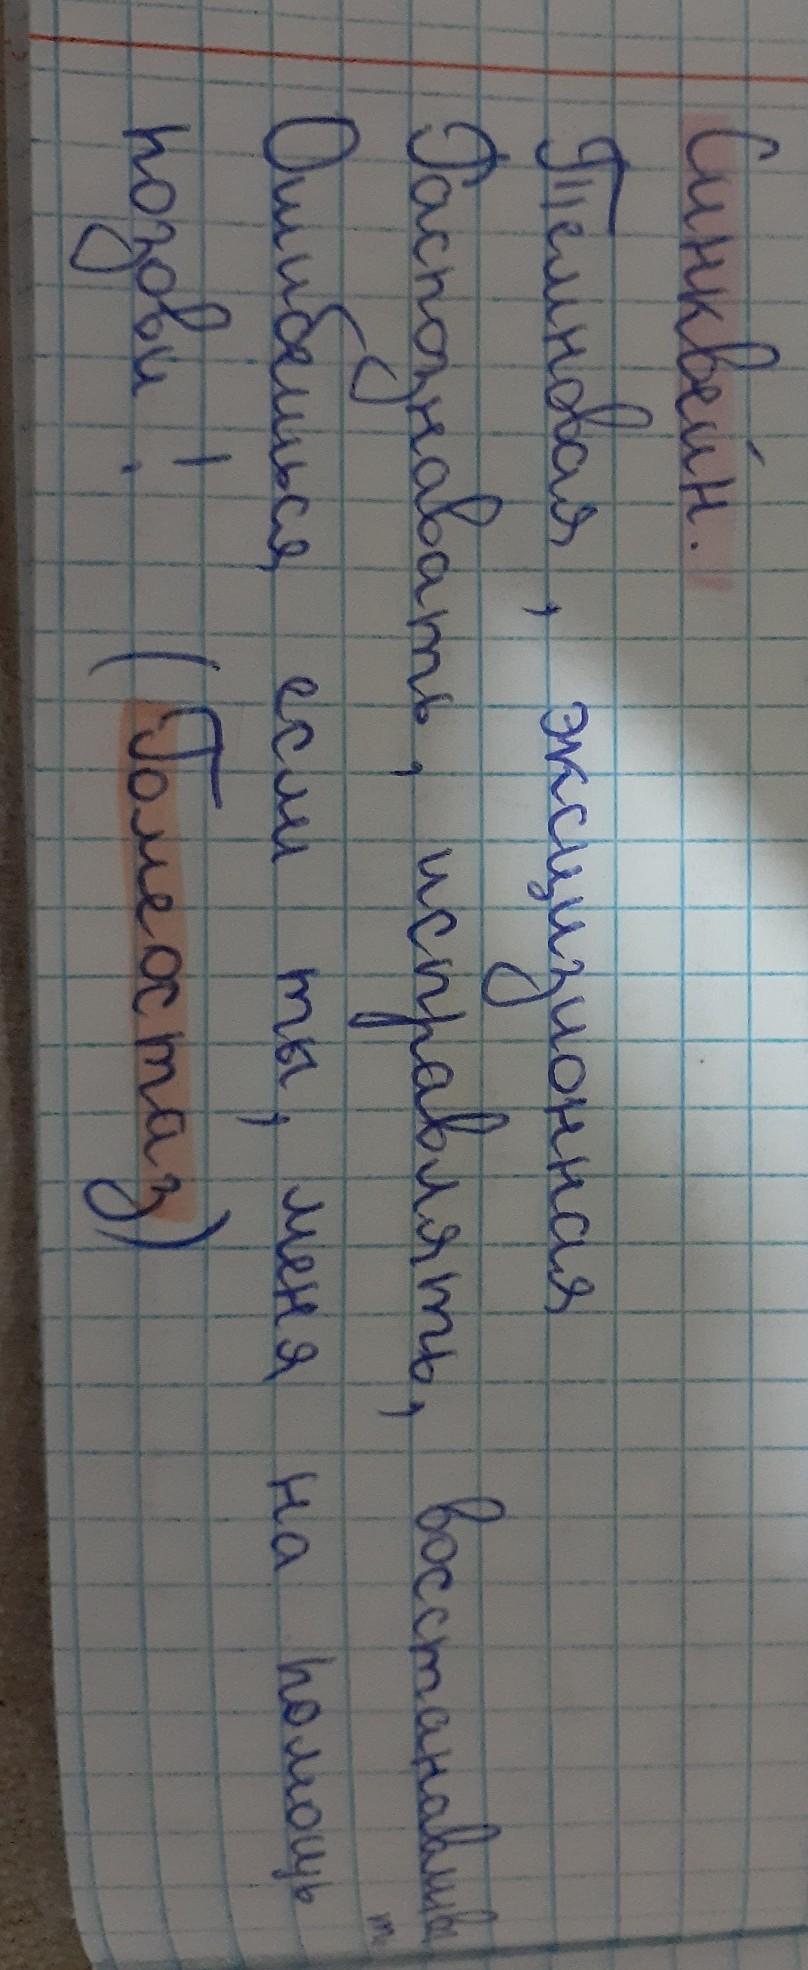 Синквейн.
Темновая, эксцизионная
Распознавать, исправлять, восстанавливать
Ошибёшься если ты, меня на помощь
позови! (Гомеостаз)